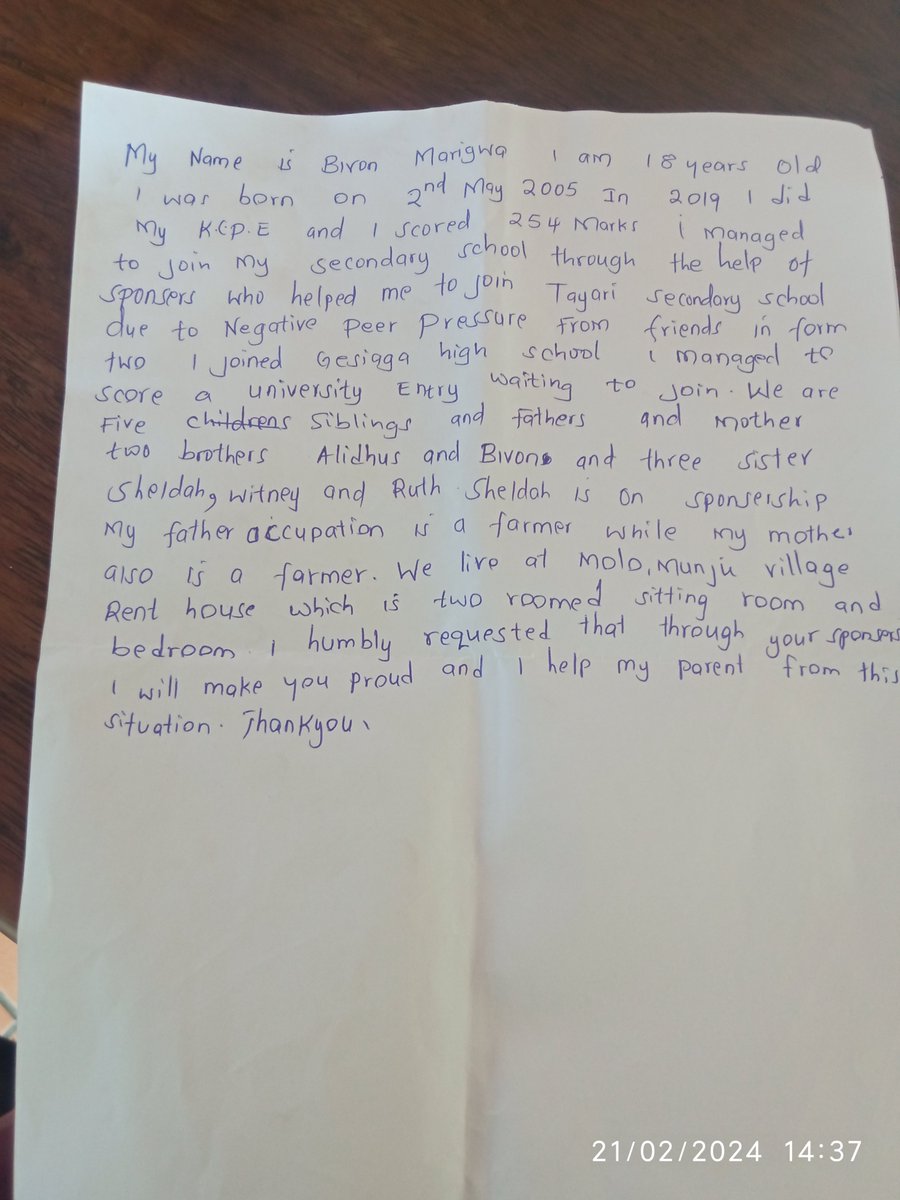 My Name is Bivon Marigwa I am 18 years old
I was born on 2nd May 2005 In 2019 I did
My K.C.P.E and I scored 254 Marks i managed
to join My secondary school through the help of
sponsers who helped me to join Tayari secondary school
due to Negative Peer Pressure from friends in form
two I joined Gesiaga high school i managed to
score a university Entry waiting to join. We are
Five childrens Siblings and fathers and mother
two brothers Alidhus and Bivon and three sister
Sheldah, Witney and Ruth. Sheldah is on sponsership
My father occupation is a farmer while my mother
also is a farmer. We live at Molo, Munju village
Rent house which is two roomed sitting room and
bedroom. I humbly requested that through your sponsers
I will make you proud and I help my parent from this
situation. Thankyou.
21/02/2024 14:37